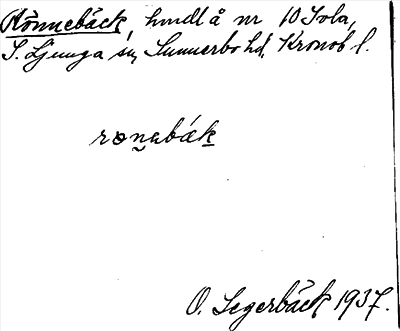 Rönnebäck, hmdl å nr 10 Tola,
S. Ljunga sn, Sunnerbo hd, Kronob l.
rønəbák
O. Segerbäck 1937.